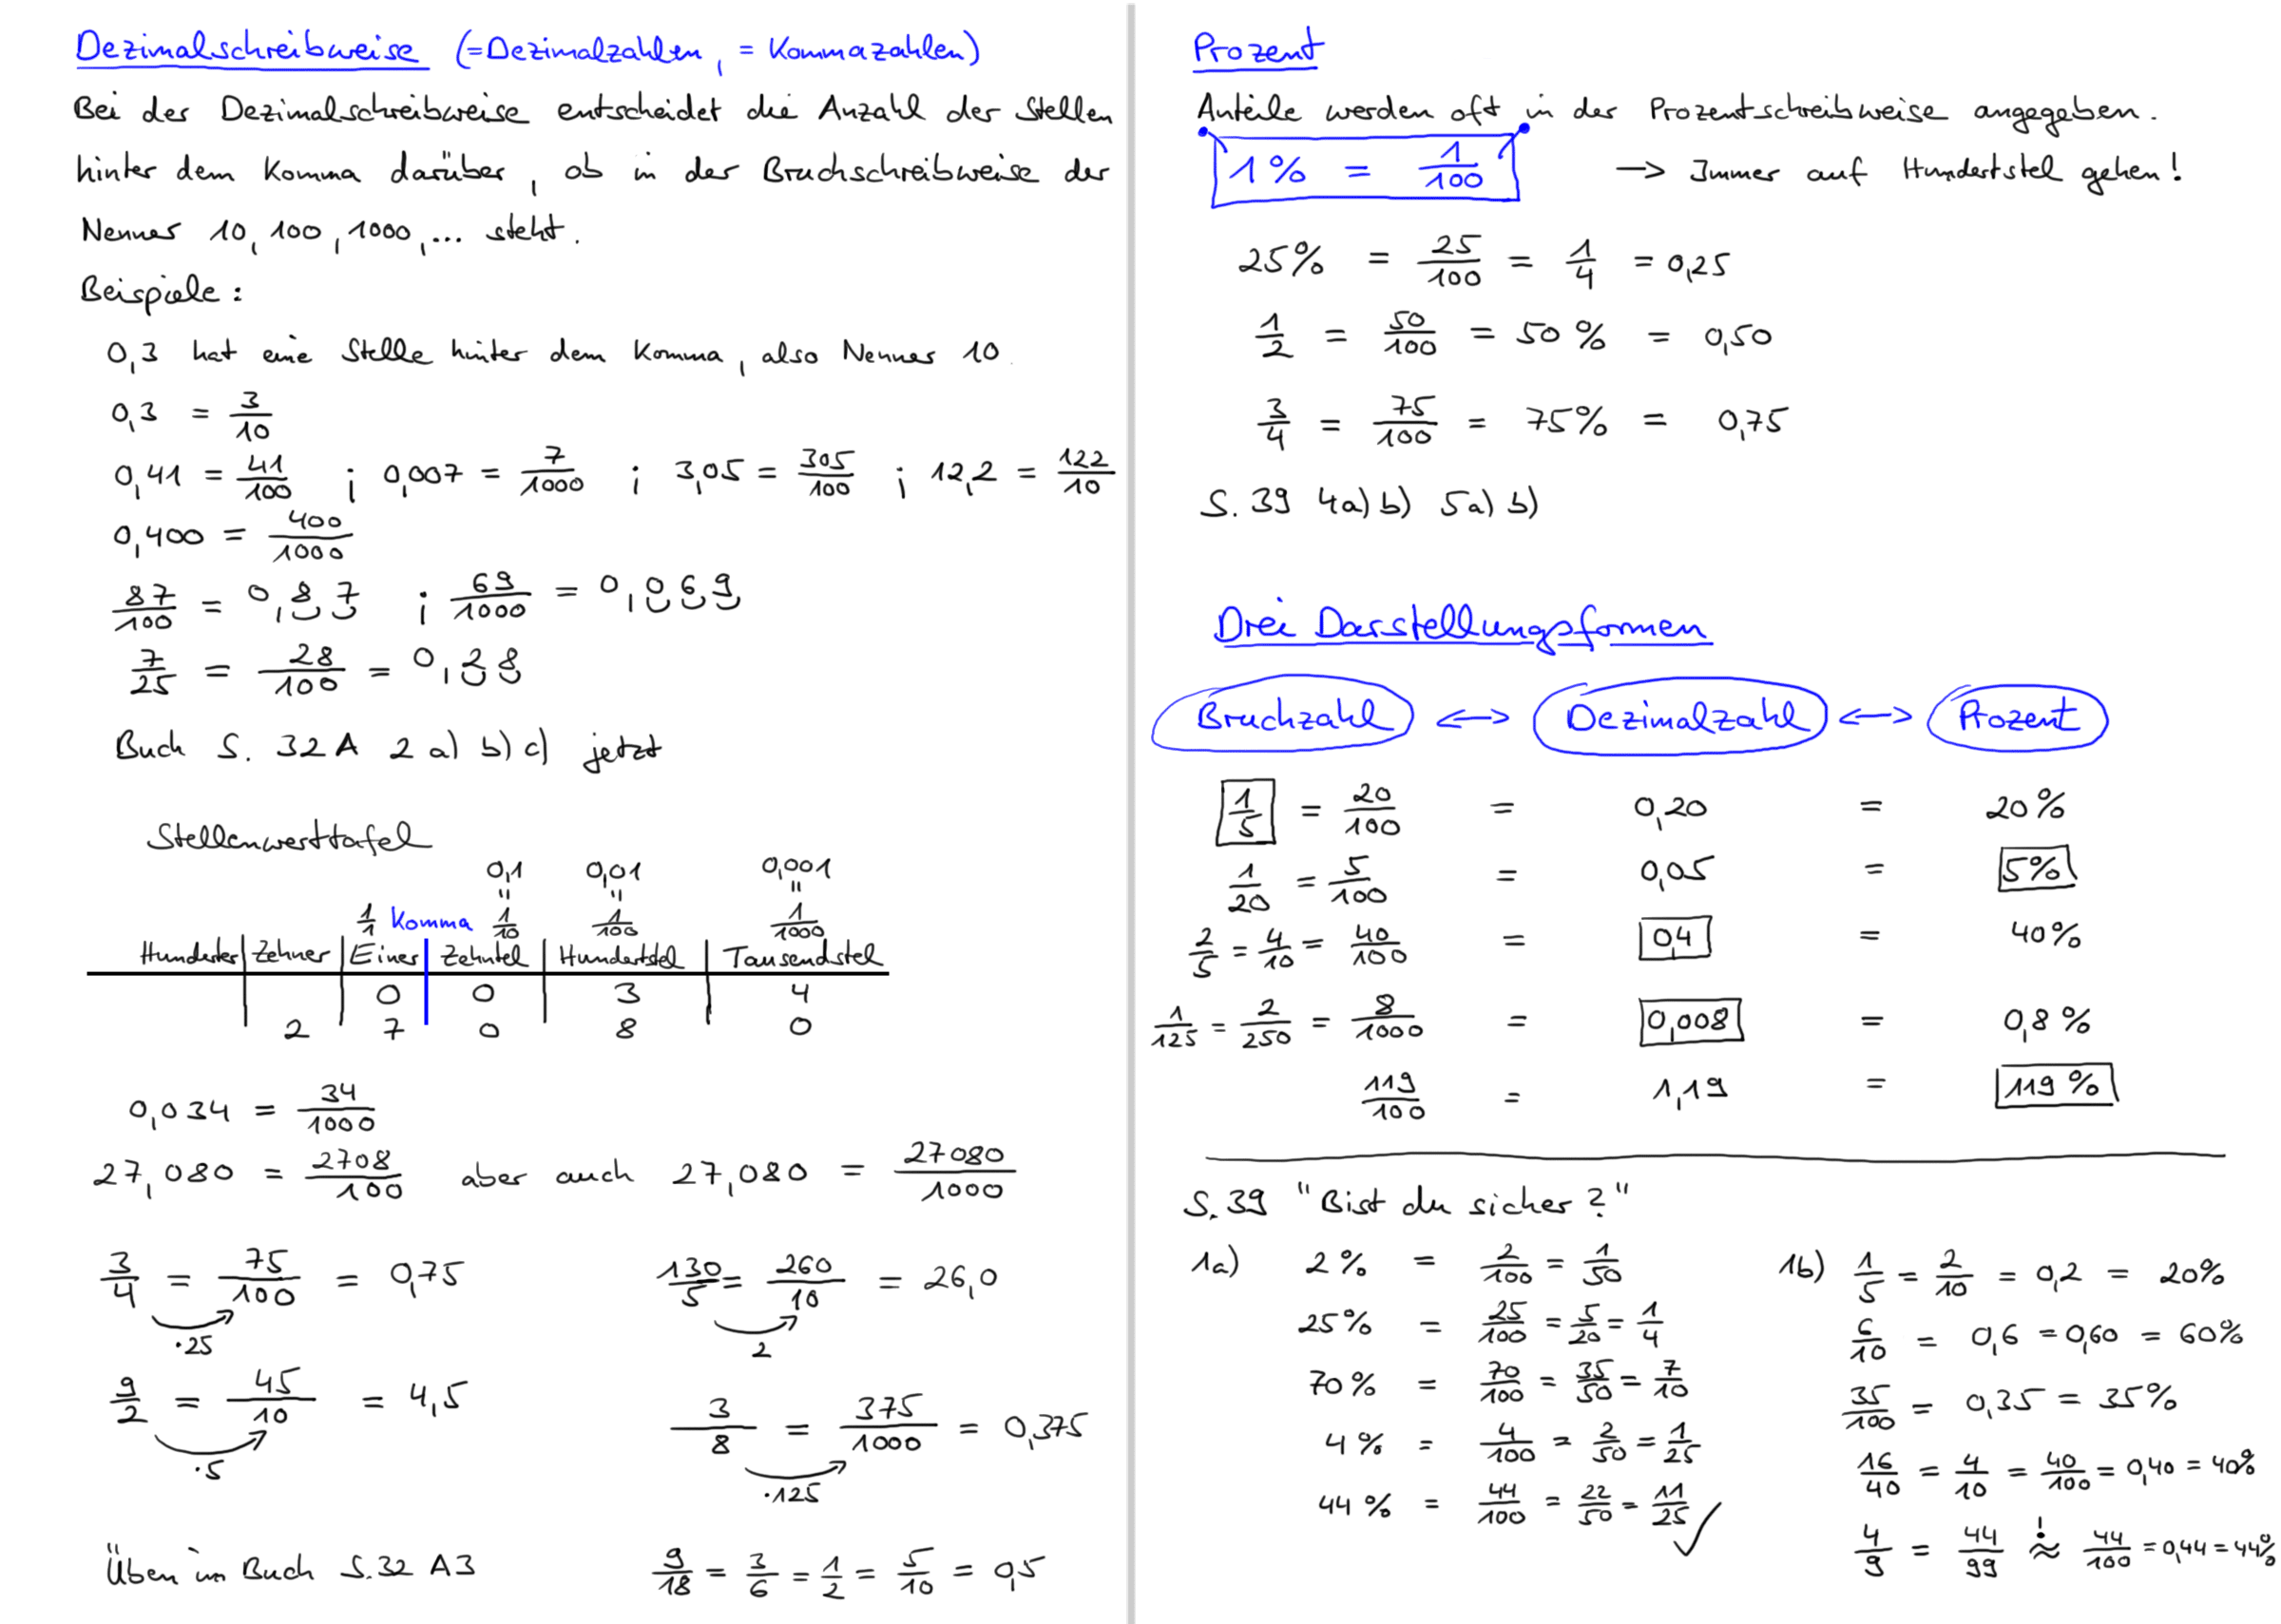 Dezimalschreibweise (=Dezimalzahlen, = Kommazahlen)
Bei der Dezimalschreibweise entscheidet die Anzahl der Stellen
hinter dem Komma darüber, ob in der Bruchschreibweise der
Nenner 10, 100, 1000, ... steht.
Beispiele:
0,3 hat eine Stelle hinter dem Komma, also Nenner 10.
0,3 = 3/10
0,41 = 41/100 ; 0,007 = 7/1000 ; 3,05 = 305/100 ; 12,2 = 122/10
0,400 = 400/1000
87/100 = 0,87 ; 69/1000 = 0,069
7/25 = 28/100 = 0,28
Buch S. 32 A 2 a) b) c) jetzt
Stellenwerttafel
0,1 0,01 0,001
= = =
1/1 Komma 1/10 1/100 1/1000
Hunderter Zehner Einer Zehntel Hundertstel Tausendstel
0 0 3 4
2 7 0 8 0
0,034 = 34/1000
27,080 = 2708/100 aber auch 27,080 = 27080/1000
3/4 = 75/100 = 0,75 130/5 = 260/10 = 26,0
·25 2
9/2 = 45/10 = 4,5 3/8 = 375/1000 = 0,375
·5 ·125
Üben im Buch S.32 A3 9/18 = 3/6 = 1/2 = 5/10 = 0,5
Prozent
Anteile werden oft in der Prozentschreibweise angegeben.
1% = 1/100 → Immer auf Hundertstel gehen!
25% = 25/100 = 1/4 = 0,25
1/2 = 50/100 = 50 % = 0,50
3/4 = 75/100 = 75% = 0,75
S. 39 4a) b) 5a) b)
Drei Darstellungsformen
Bruchzahl <-> Dezimalzahl <-> Prozent
1/5 = 20/100 = 0,20 = 20%
1/20 = 5/100 = 0,05 = 5%
2/5 = 4/10 = 40/100 = 0,4 = 40%
1/125 = 2/250 = 8/1000 = 0,008 = 0,8 %
119/100 = 1,19 = 119 %
S. 39 "Bist du sicher?"
1a) 2 % = 2/100 = 1/50
25% = 25/100 = 5/20 = 1/4
70% = 70/100 = 35/50 = 7/10
4 % = 4/100 = 2/50 = 1/25
44 % = 44/100 = 22/50 = 11/25 ✓
1b) 1/5 = 2/10 = 0,2 = 20%
6/10 = 0,6 = 0,60 = 60%
35/100 = 0,35 = 35%
16/40 = 4/10 = 40/100 = 0,40 = 40%
4/9 = 44/99 ! ≈ 44/100 = 0,44 = 44%